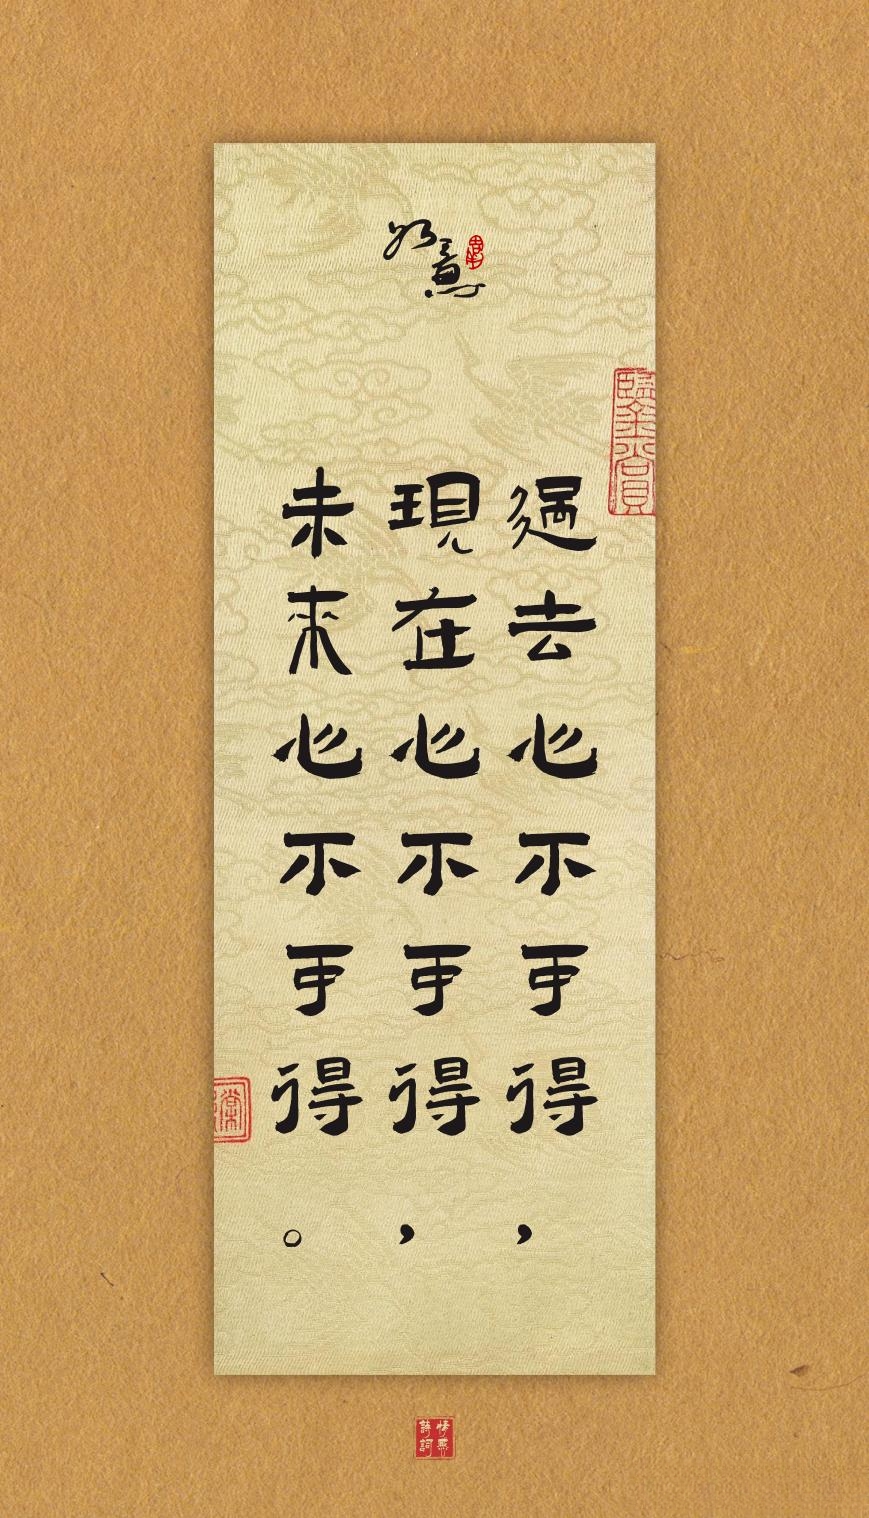 如意
過去心不可得，
現在心不可得，
未來心不可得。
詩詞